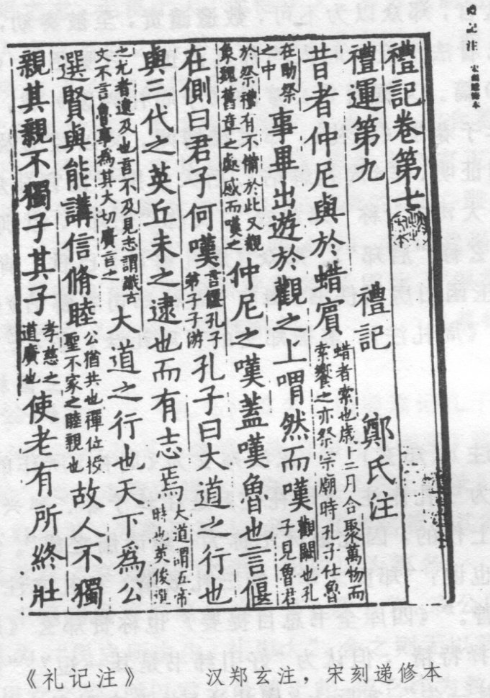 記注
禮記卷第七
禮運第九 禮記 鄭氏注
昔者仲尼與於蜡賓 蜡者索也歲十二月合聚萬物而索饗之亦祭宗廟時孔子仕魯
在助祭之中 事畢出遊於觀之上喟然而嘆 觀闕也孔子見魯君
於祭禮有不備於此又覩象魏舊章之處感而嘆之 仲尼之嘆蓋嘆魯也言偃
在側曰君子何嘆 言偃孔子弟子子游 孔子曰大道之行也
與三代之英丘未之逮也而有志焉 大道謂五帝時也英俊選
之尤者逮及也言不及見志謂識古文不言魯事為其大切廣言之 大道之行也天下為公
選賢與能講信脩睦 公猶共也禪位授聖不家之睦親也 故人不獨
親其親不獨子其子 孝慈之道廣也 使老有所終壯
《礼记注》 汉郑玄注，宋刻递修本